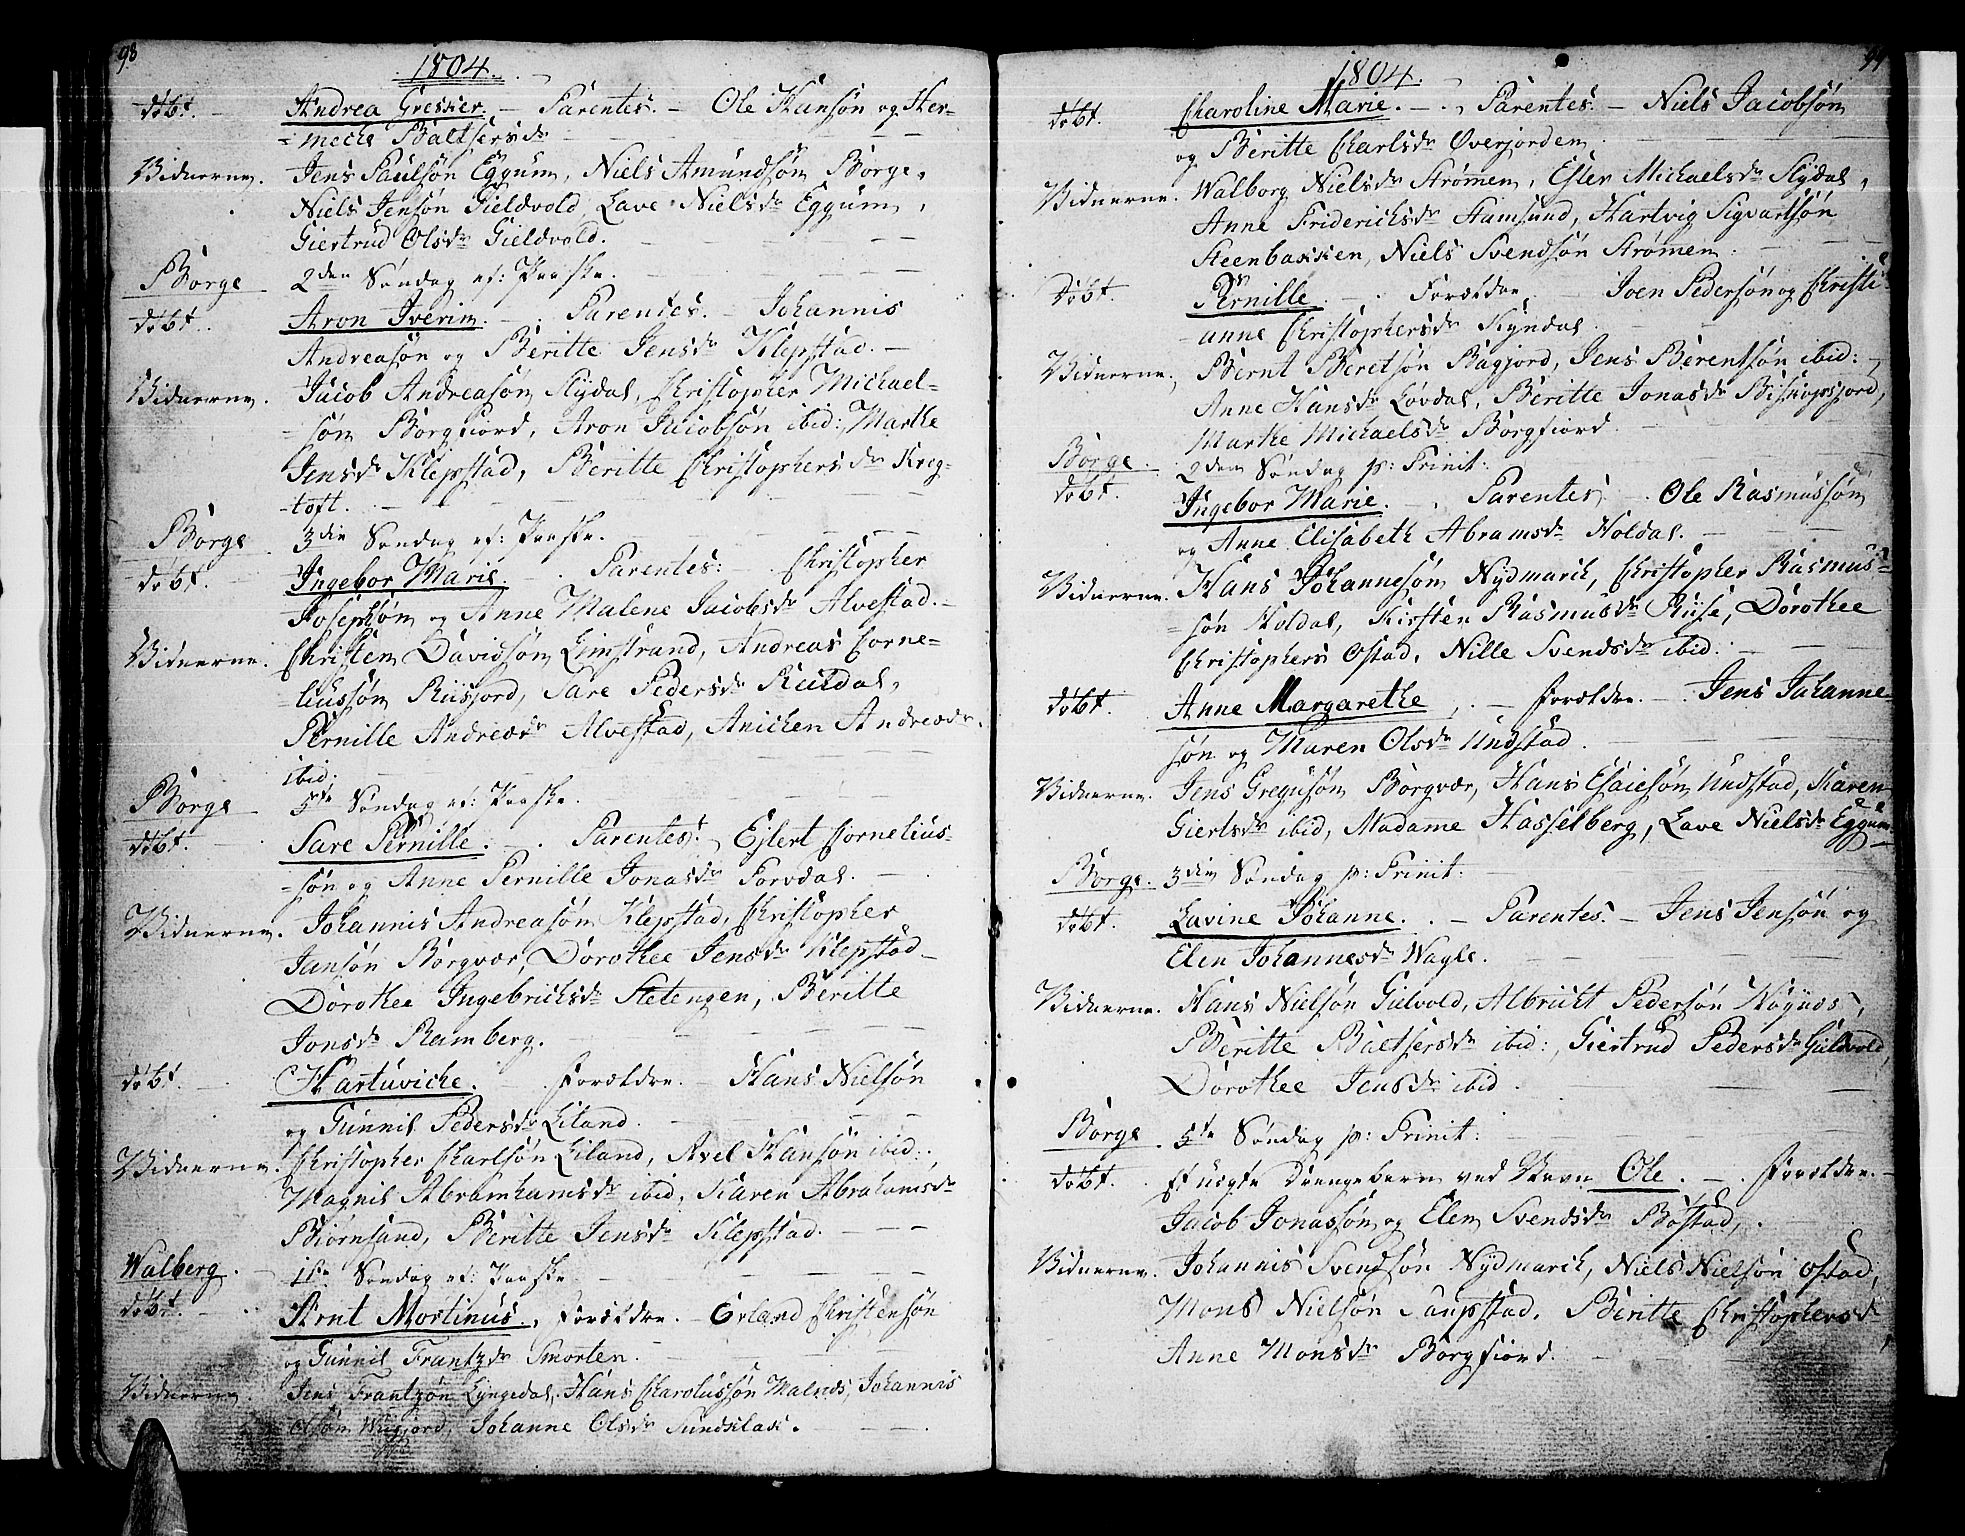 98
1804.
døbt. Andrea Gresker. - Parentes. - Ole Hansøn og Her-
= meche Baltsersdr
Vidnerne. Jens Paulsøn Eggum, Niels Amundsøn Borge,
Niels Jensøn Gieldvold, Lave Nielsdr Eggum,
Giertrud Olsdr Gieldvold.
Borge 2den Søndag ef: Paaske.
døbt. Aron Iverin. - Parentes. - Johannis
Andreasøn og Beritte Jensdr Klepstad. -
Vidnerne. Jacob Andreasøn Slydal, Christopher Michael-
= søn Borgfiord, Aron Jacobsøn ibid: Marthe
Jensdr Klepstad, Beritte Christophersdr Kreg-
- toft.
Borge 3die Søndag ef: Paaske.
døbt. Ingebor Marie. - Parentes: Christopher
Josephsøn og Anne Malene Jacobsdr Alvestad. -
Vidnerne. Christen Davidsøn Limstrand, Andreas Corne-
= liussøn Riisjord, Sare Pedersdr Ruldal,
Pernille Andreædr Alvestad, Anichen Andreædr.
ibid.
Borge 5te Søndag ef: Paaske.
døbt. Sare Pernille. - Parentes: Ejlert Cornelius-
= søn og Anne Pernille Jonasdr Torvdal. -
Vidnerne. Johannis Andreasøn Klepstad, Christopher
Jansøn Borgvær, Dorothee Jensdr Klepstad
Dorothee Ingebrichsdr Stetengen, Beritte
Jonsdr Ramberg.
døbt. Hartuviche. - Forældre. - Hans Nielsøn
og Gunnil Pedersdr Liland.
Vidnerne. Christopher Charlsøn Liland, Axel Hansøn ibid:,
Magnil Abramhamsdr ibid, Karen Abrahamsdr
Biørnsund, Beritte Jensdr Klepstad.
Walberg. 1ste Søndag ef: Paaske
døbt. Arnt Mortinus. Forældre. - Erland Christensøn
og Gunnil Frantzdr Smorten.
Vidnerne. Jens Frantzøn Lyngedal, Hans Charolussøn Malnds, Johannis
Olsøn, Johanne Olsdr Sundklak.
99
1804.
døbt. Charoline Marie. - Parentes. - Niels Jacobsøn
og Beritte Charlsdr Øverjorden.
Vidnerne. Walborg Nielsdr Strømen, Ester Michaelsdr Slydal,
Anne Friderichsdr Stamsund, Hartvig Sigvartsøn
Steenbakken, Niels Svendsøn Strømen.
Døbt. Pernille. - Forældre. - Joen Pedersøn og Christi-
anne Christophersdr Kyndal.
Vidnerne. Bernt Beretsøn Bagjord, Jens Berentsøn ibid:
Anne Hansdr Løvdal, Beritte Jonasdr Biskopsjord,
Marthe Michaelsdr Borgfiord
Borge. 2den Søndag p: Trinit:
døbt. Ingebor Marie. Parentes. Ole Rasmussøn
og Anne Elisabeth Abramsdr Holdal. -
Vidnerne. Hans Johannesøn Nydmarck, Christopher Rasmus-
= søn Holdal, Kirsten Rasmusdr Riise, Dorothee
Christophersdr Ostad, Nille Svendsdr ibid.
døbt. Anne Margarethe, - Forældre. - Jens Johanne-
søn og Maren Olsdr Undstad.
Vidnerne. Jens Gregusøn Borgvær, Hans Esaiesøn Undstad, Karen
Giertsdr ibid, Madame Hasselberg, Lave Nielsdr Eggum
Borge. 3die Søndag p: Trinit:
døbt. Lavine Johanne. - Parentes. - Jens Jensøn og
Elen Johannesdr Wagle.
Vidnerne. Hans Nielsøn Gielvold, Albricht Pedersøn Høynds,
Beritte Baltsersdr ibid:, Giertrud Pedersdr Gieldvold,
Dorothee Jensdr ibid.
Borge. 5te Søndag p: Trinit:
døbt. Et uægte Drengebarn ved Navn Ole. - Forældre. -
Jacob Jonassøn og Elen Svendsdr Bøstad,
Vidnerne. Johannis Svendsøn Nydmarck, Niels Nielsøn Ostad,
Mons Nielsøn Saupstad, Beritte Christophersdr
Anne Monsdr Borgfiord.